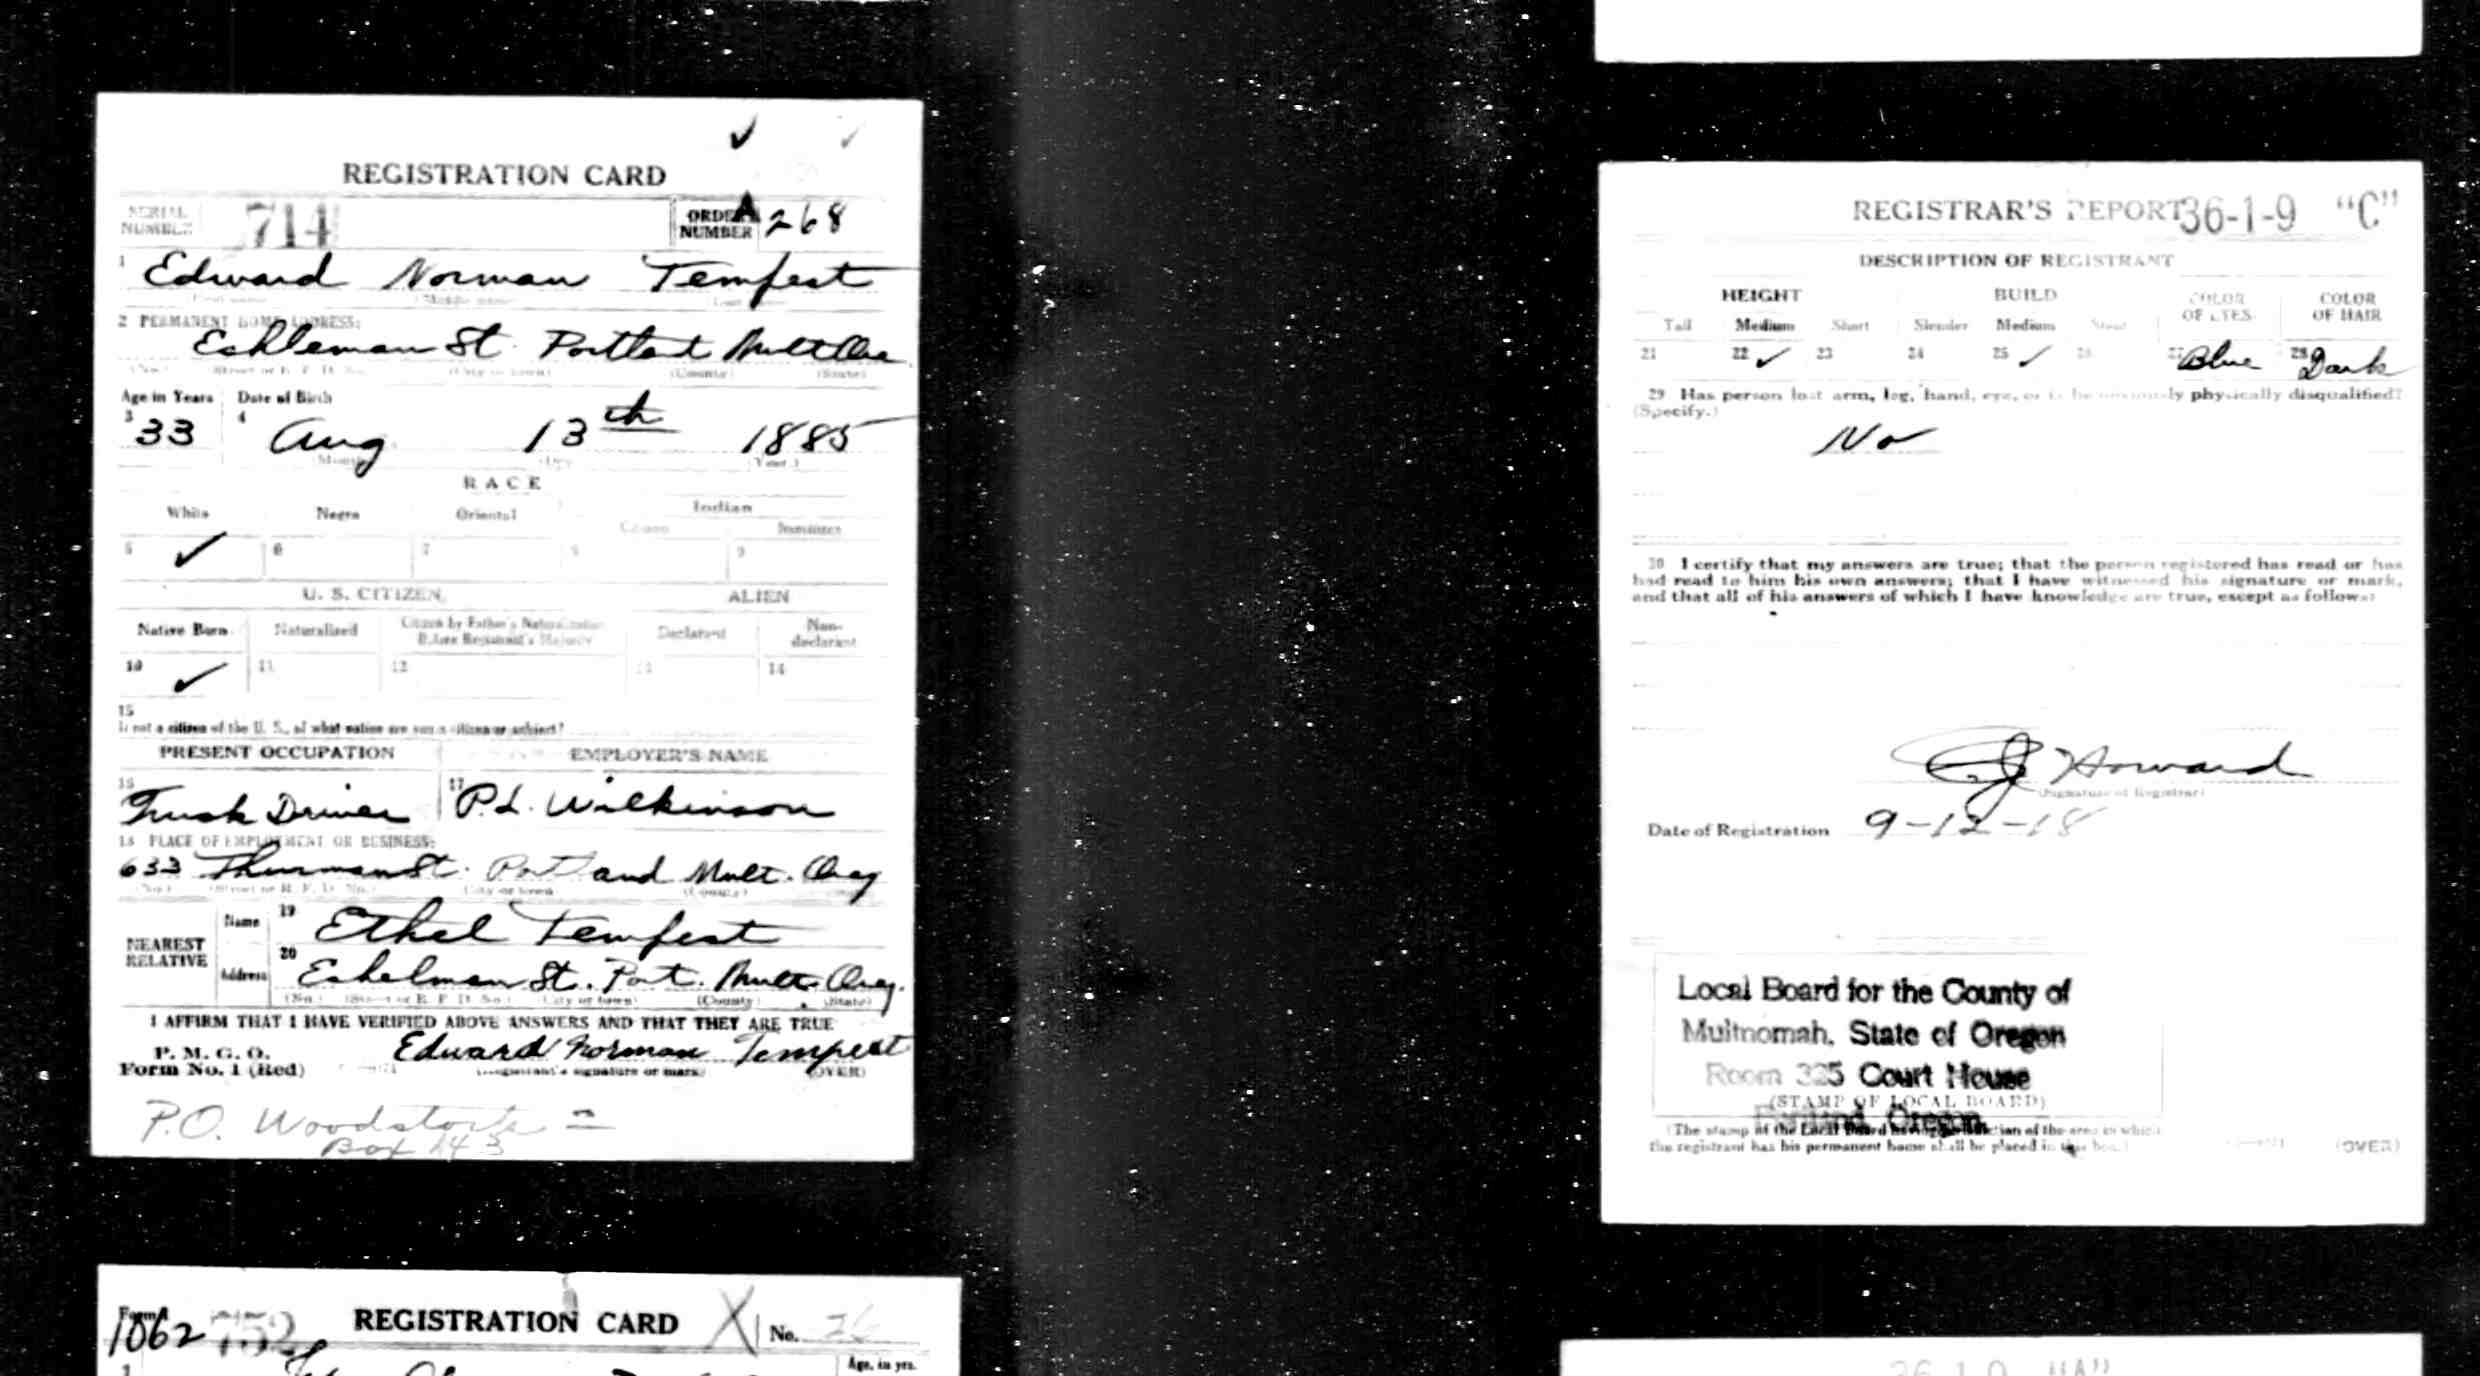 REGISTRATION CARD
SERIAL NUMBER 714 ORDER NUMBER A268
1 Edward Norman Tempest
(First name) (Middle name) (Last name)
2 PERMANENT HOME ADDRESS:
Echleman St. Portland Mult Ore
(No.) (Street or R. F. D. No.) (City or town) (County) (State)
Age in Years Date of Birth
3 33 4 Aug 13th 1885
(Month) (Day) (Year)
RACE
White Negro Oriental Indian
Citizen Noncitizen
5 ✓ 6 7 8 9
U. S. CITIZEN ALIEN
Native Born Naturalized Citizen by Father's Naturalization Before Registrant's Majority Declarant Non-declarant
10 ✓ 11 12 13 14
15
If not a citizen of the U. S., of what nation are you a citizen or subject?
PRESENT OCCUPATION EMPLOYER'S NAME
16 Truck Driver 17 P.L. Wilkinson
18 PLACE OF EMPLOYMENT OR BUSINESS:
633 Thurman St. Portland Mult. Oreg
(No.) (Street or R. F. D. No.) (City or town) (County)
NEAREST RELATIVE Name 19 Ethel Tempest
Address 20 Eshelman St. Port. Mult Oreg.
(No.) (Street or R. F. D. No.) (City or town) (County) (State)
I AFFIRM THAT I HAVE VERIFIED ABOVE ANSWERS AND THAT THEY ARE TRUE
P. M. G. O.
Form No. 1 (Red) Edward Norman Tempest
(Registrant's signature or mark) (OVER)
P.O. Woodstock =
Box 143
REGISTRAR'S REPORT 36-1-9 "C"
DESCRIPTION OF REGISTRANT
HEIGHT BUILD COLOR OF EYES COLOR OF HAIR
Tall Medium Short Slender Medium Stout
21 22 ✓ 23 24 25 ✓ 26 27 Blue 28 Dark
29 Has person lost arm, leg, hand, eye, or is he obviously physically disqualified?
(Specify.)
No
30 I certify that my answers are true; that the person registered has read or has
had read to him his own answers; that I have witnessed his signature or mark,
and that all of his answers of which I have knowledge are true, except as follows:
Howard
(Signature of Registrar)
Date of Registration 9-12-18
Local Board for the County of
Multnomah, State of Oregon
Room 325 Court House
(STAMP OF LOCAL BOARD)
Portland, Oregon
(The stamp of the Local Board having jurisdiction of the area in which
the registrant has his permanent home shall be placed in this box.)
(OVER)
Form 1
1062 752 REGISTRATION CARD X No. 26
1 Age, in yrs.
36 1 9 "A"